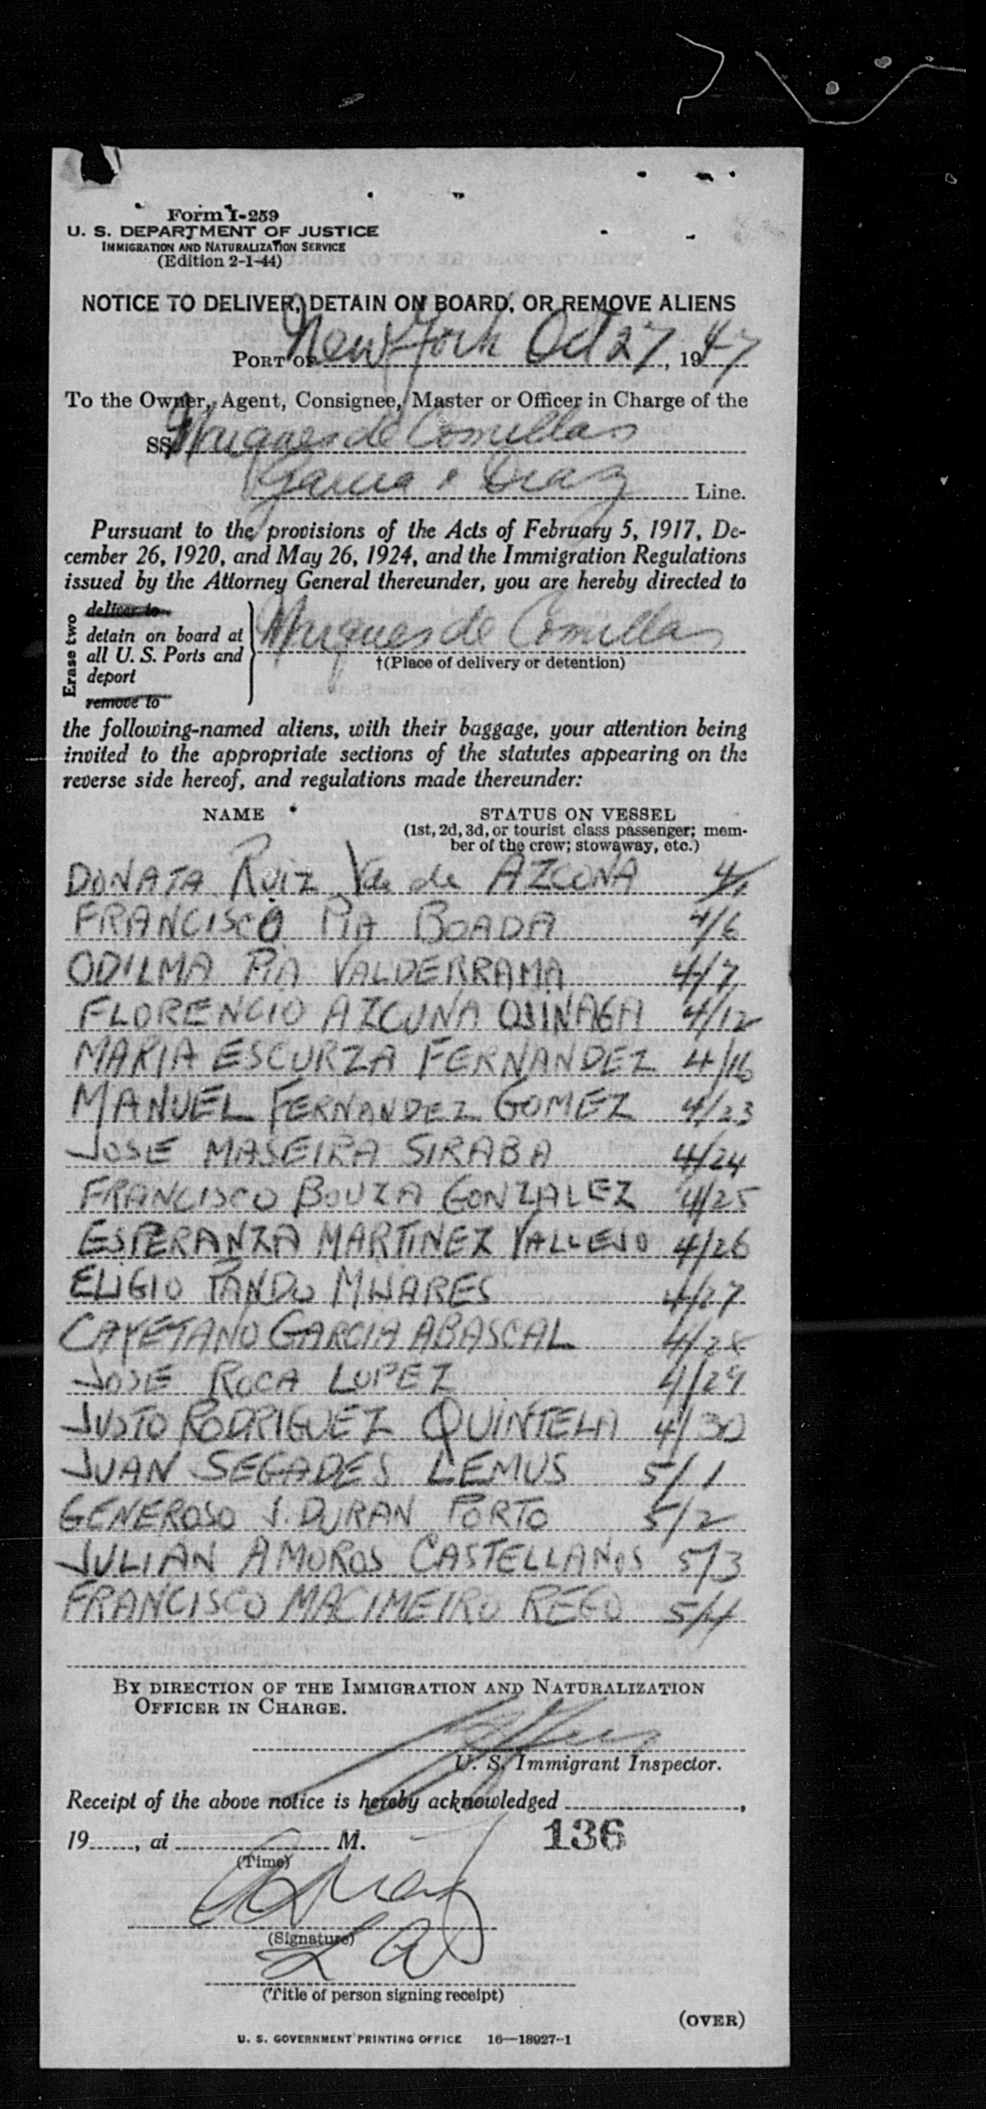 Form I-259
U. S. DEPARTMENT OF JUSTICE
IMMIGRATION AND NATURALIZATION SERVICE
(Edition 2-1-44)
NOTICE TO DELIVER, DETAIN ON BOARD, OR REMOVE ALIENS
PORT OF New York Oct 27, 1947
To the Owner, Agent, Consignee, Master or Officer in Charge of the
SS Marques de Comillas
Garcia & Diaz Line.
Pursuant to the provisions of the Acts of February 5, 1917, De-
cember 26, 1920, and May 26, 1924, and the Immigration Regulations
issued by the Attorney General thereunder, you are hereby directed to
Erase two
deliver to
detain on board at
all U. S. Ports and
deport
remove to
Marques de Comillas
†(Place of delivery or detention)
the following-named aliens, with their baggage, your attention being
invited to the appropriate sections of the statutes appearing on the
reverse side hereof, and regulations made thereunder:
NAME * STATUS ON VESSEL
(1st, 2d, 3d, or tourist class passenger; mem-
ber of the crew; stowaway, etc.)
DONATA RUIZ Vda de AZCUNA 4/1
FRANCISCO PIA BOADA 4/6
ODILMA PIA VALDERRAMA 4/7
FLORENCIO AZCUNA OSINAGA 4/12
MARIA ESCURZA FERNANDEZ 4/16
MANUEL FERNANDEZ GOMEZ 4/23
JOSE MASEIRA SIRABA 4/24
FRANCISCO BOUZA GONZALEZ 4/25
ESPERANZA MARTINEZ VALLEJO 4/26
ELIGIO PANDO MIJARES 4/27
CAYETANO GARCIA ABASCAL 4/28
JOSE ROCA LOPEZ 4/29
JUSTO RODRIGUEZ QUINTELA 4/30
JUAN SEGADES LEMUS 5/1
GENEROSO J. DURAN PORTO 5/2
JULIAN AMOROS CASTELLANOS 5/3
FRANCISCO MACIMEIRO REGO 5/4
BY DIRECTION OF THE IMMIGRATION AND NATURALIZATION
OFFICER IN CHARGE.
U. S. Immigrant Inspector.
Receipt of the above notice is hereby acknowledged ,
19 , at M. 136
(Time)
(Signature)
(Title of person signing receipt)
(OVER)
U. S. GOVERNMENT PRINTING OFFICE 16—18927-1